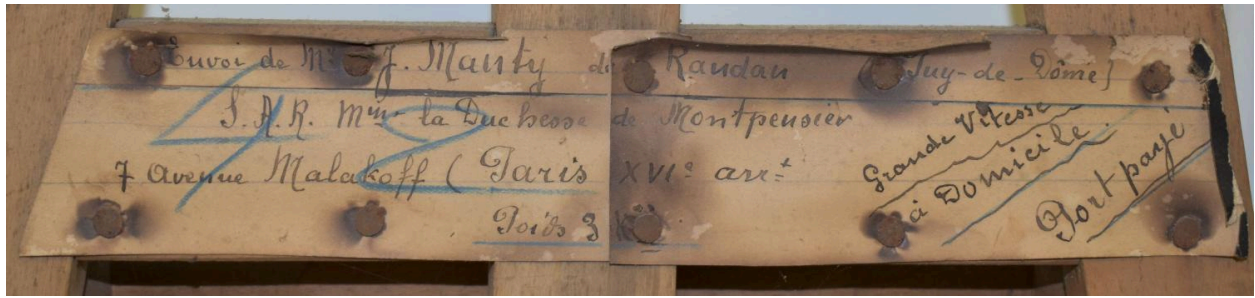 Envoi de Mr J. Mauty de Randan (Puy-de-Dôme)
S. A. R. Mme la Duchesse de Montpensier
7 Avenue Malakoff (Paris XVIe arrt
Poids 3 K
Grande Vitesse
à Domicile.
Port payé